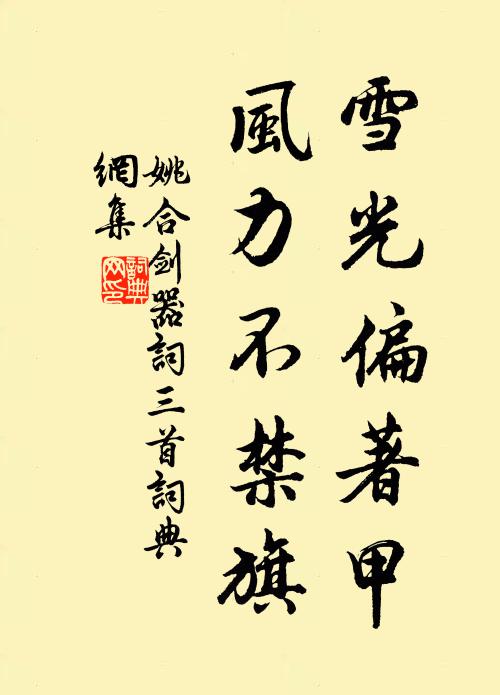 雪光偏著甲
風力不禁旗
姚合劍器詞三首詞典
網集
詞典
网印